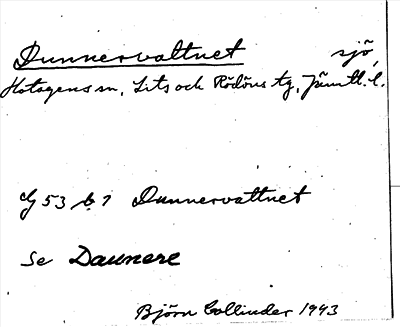 Dunnervattnet sjö,
Hotagens sn, Lits och Rödöns tg, Jämtl. l.
G 53 b 7 Dunnervattnet
Se Daunere
Björn Collinder 1943